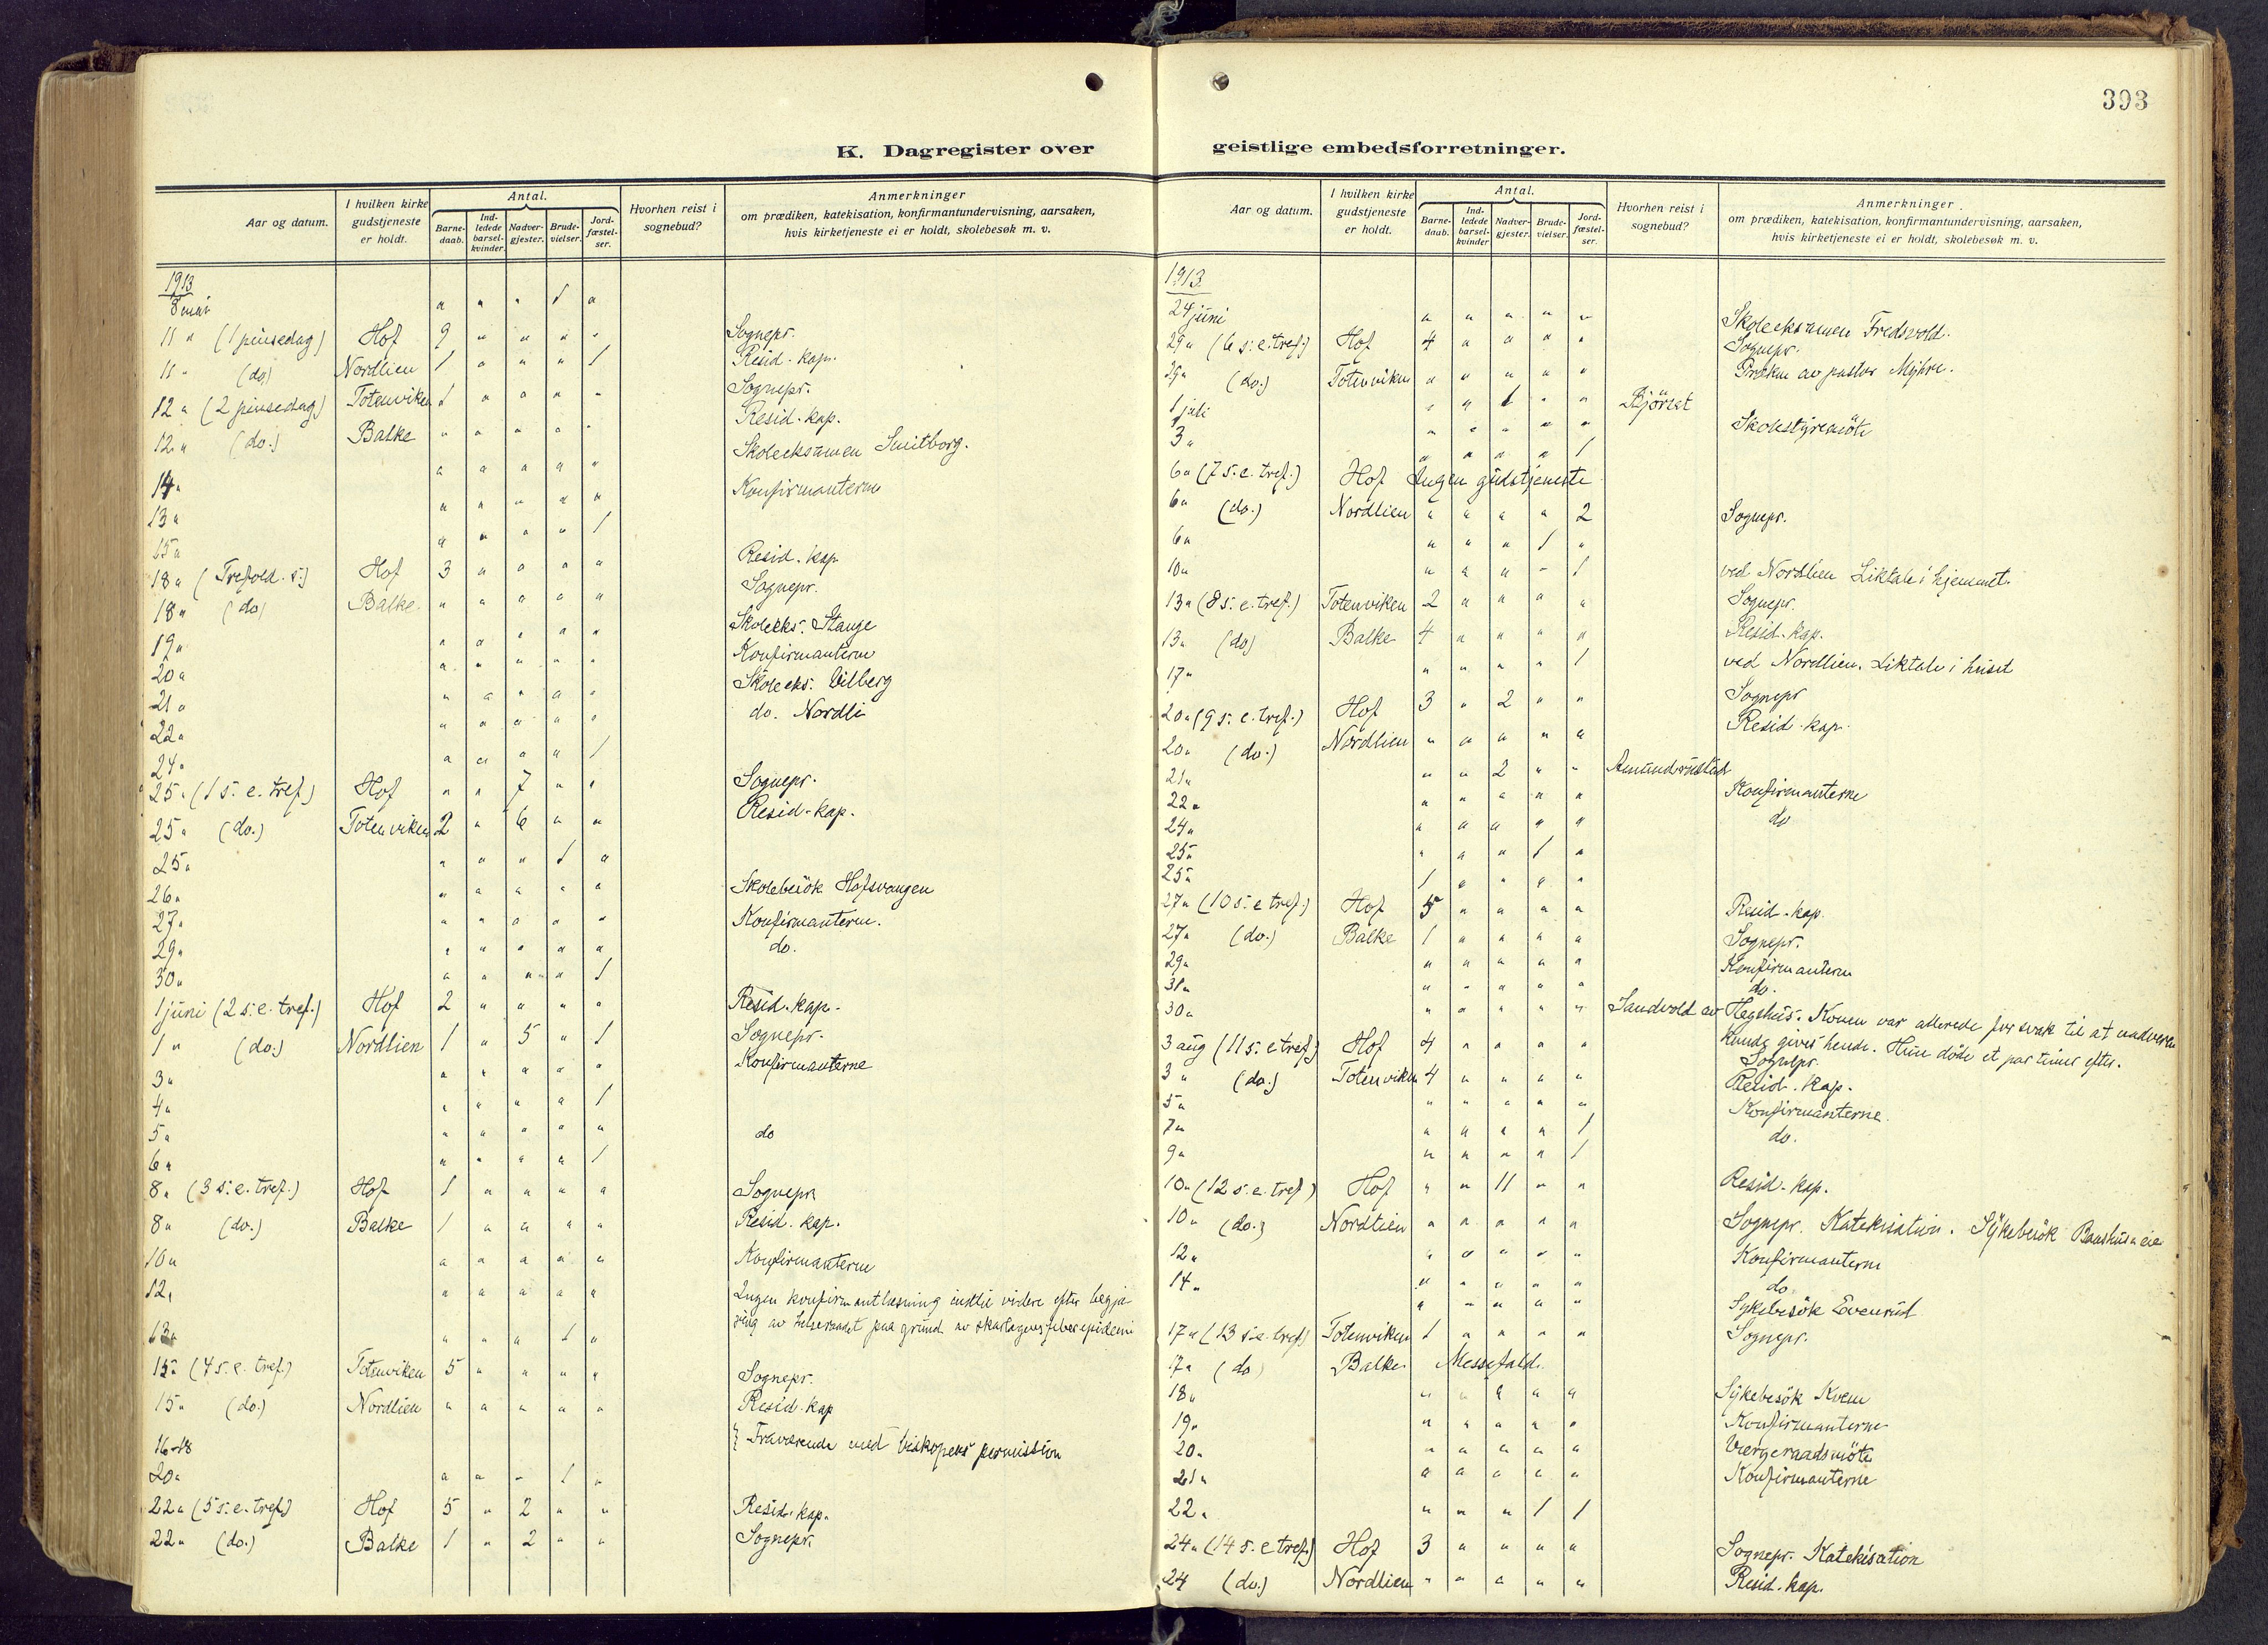 K. Dagregister over
Aar og datum. I hvilken kirke gudstjeneste er holdt. Antal. Barnedaab. Indledede barselkvinder. Nadvergjester. Brudevielser. Jordfæstelser. Hvorhen reist i sognebud? Anmerkninger om prædiken, katekisation, konfirmantundervisning, aarsaken, hvis kirketjeneste ei er holdt, skolebesøk m. v.
1913
8 mai " " " 1 "
11 " (1 pinsedag) Hof 9 " " " " Sognepr.
11 " (do) Nordlien 1 " " " 1 Resid. kap.
12 " (2 pinsedag) Totenviken 1 " " " " Sognepr.
12 " (do.) Balke " " " " " Resid. kap.
14 " " " " " " Skoleeksamen Smitborg.
13 " " " " " " Konfirmanterne
15 " " " " " 1
18 " (Trefold. s.) Hof 3 " " " " Resid. kap.
18 " (do) Balke " " " " " Sognepr.
19 " " " " " " Skoleeks. Stange
20 " " " " " " Konfirmanterne
21 " " " " " " Skoleeks. Vilberg
22 " " " " " " do. Nordli
24 " " " " " 1
25 " (1 s. e. tref.) Hof " " 7 " " Sognepr.
25 " (do.) Totenviken 2 " 6 " " Resid. kap.
25 " " " " 1 "
26 " " " " " " Skolebesök Hofsvangen
27 " " " " " " Konfirmanterne.
29 " " " " " " do.
30 " " " " " 1
1 juni (2 s. e. tref.) Hof 2 " " " " Resid. kap.
1 " (do.) Nordlien 1 " 5 " 1 Sognepr.
3 " " " " " " Konfirmanterne
4 " " " " " 1
5 " " " " " " do
6 " " " " " 1
8 " (3 s. e. tref.) Hof 1 " " " " Sognepr.
8 " (do.) Balke 1 " " " " Resid. kap.
10 " " " " " " Konfirmanterne
12 " " " " " " Ingen konfirmantlæsning indtil videre efter begjæ-
13 " " " " 1 " ring av helseraadet paa grund av skarlagensfeberepidemi
15 " (4 s. e. tref.) Totenviken 5 " " " " Sognepr.
15 " (do.) Nordlien " " " " " Resid. kap
16-18 } Fraværende med biskopens permission
20 " " " " 1 "
22 " (5 s. e. tref.) Hof 5 " 2 " " Resid. kap.
22 " (do.) Balke 1 " 2 " " Sognepr.
393
geistlige embedsforretninger.
Aar og datum. I hvilken kirke gudstjeneste er holdt. Antal. Barnedaab. Indledede barselkvinder Nadvergjester. Brudevielser. Jordfæstelser. Hvorhen reist i sognebud? Anmerkninger om prædiken, katekisation, konfirmantundervisning, aarsaken, hvis kirketjeneste ei er holdt, skolebesøk m. v.
1913
24 juni " " " " " Skoleeksamen Fredsvold.
29 " (6 s. e. tref.) Hof 4 " " " " Sognepr.
29 " (do.) Totenviken " " " " " Præken av pastor Myhre.
1 juli " " 1 " " Björset
3 " " " " " " Skolestyremöte
" " " " 1
6 " (7 s. e. tref.) Hof Ingen gudstjeneste
6 " (do.) Nordlien " " " " 2 Sognepr.
6 " " " " 1 "
10 " " " " " 1 ved Nordlien Liktale i hjemmet.
13 " (8 s. e. tref.) Totenviken 2 " " " " Sognepr.
13 " (do) Balke 4 " " " " Resid. kap.
17 " " " " " 1 ved Nordlien. Liktale i huset
20 " (9 s. e. tref.) Hof 3 " 2 " " Sognepr
20 " (do.) Nordlien " " " " " Resid. kap.
21 " " " 2 " " Amundrustad
22 " " " " " " Konfirmanterne
24 " " " " " " do
25 " " " " 1 "
25 " 1 " " " "
27 " (10 s. e tref.) Hof 5 " " " " Resid. kap.
27 " (do.) Balke 1 " " " " Sognepr.
29 " " " " " " Konfirmanterne
31 " " " " " " do.
30 " " " " " " Sandvold av Hegshus. Konen var allerede for svak til at nadveren
kunde gives hende. Hun døde et par timer efter.
3 aug (11 s. e tref) Hof 4 " " " " Sognepr.
3 " (do.) Totenviken 4 " " " " Resid. kap.
5 " " " " " " Konfirmanterne.
7 " " " " " 1 do.
9 " " " " " 1
10 " (12 s. e. tref) Hof " " 11 " " Resid. kap.
10 " (do.) Nordlien " " " " " Sognepr. Katekisation. Sykebesök
12 " " " " " " Konfirmanterne
14 " " " " " " do.
" " " " " Sykebesök Evenrud
17 " (13 s. e. tref) Totenviken 1 " " " " Sognepr.
17 " (do) Balke Messefald.
18 " " " " " " Sykebesök Kvem
19 " " " " " " Konfirmanterne
20 " " " " " " Vergeraadsmöte
21 " " " " " " Konfirmanterne
22 " " " " 1 1
24 " (14 s. e tref.) Hof 3 " " " " Sognepr. Katekisation
24 (do.) Nordlien " " " " " Resid. kap.